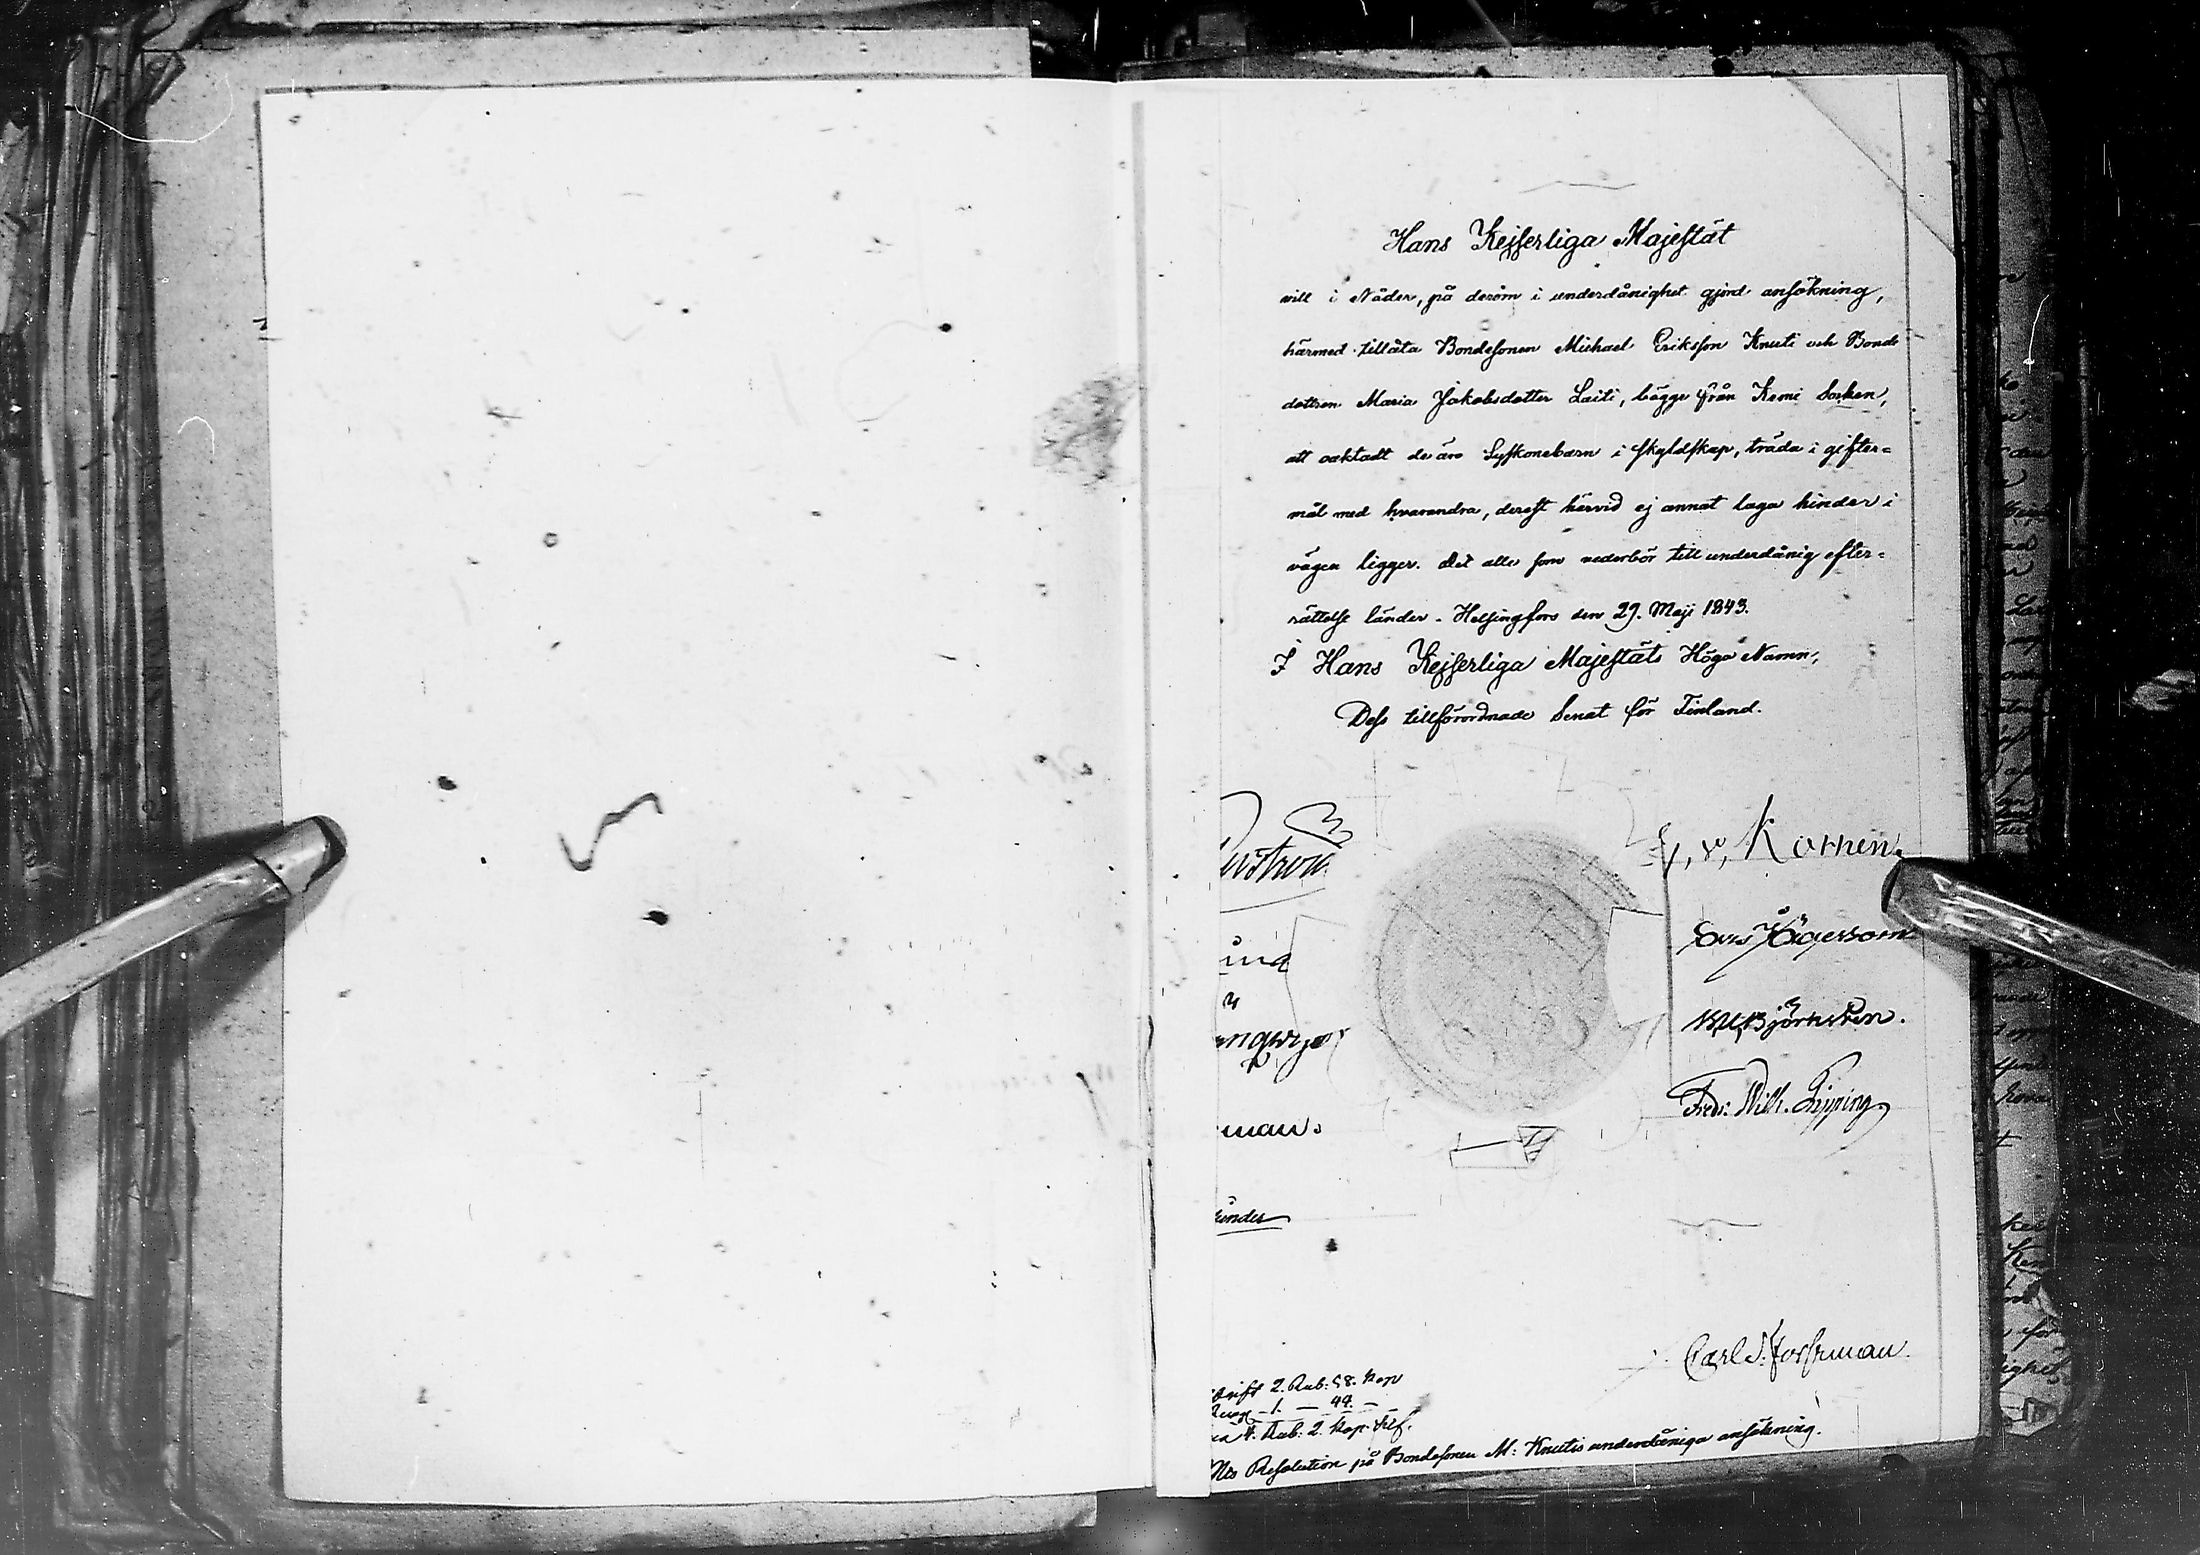 Hans Kejserliga Majestät
vill i Nåder, på derom i underdånighet gjord ansökning,
härmed tillåta Bondesonen Michael Eriksson Knuti och Bonde
dottren Maria Jakobsdotter Laiti, bägge från Kemi Socken,
att oaktadt de äro Syskonebarn i skyldskap, träda i gifter=
mål med hvarandra, derest härvid ej annat laga hinder i
vägen ligger. Det alle som vederbör till underdånig efter=
rättelse länder. Helsingfors den 29. Maji 1843.
I Hans Kejserliga Majestäts Höga Namn,
Dess tillförordnade Senat för Finland.
v. Kothen.
Jägerhorn
Björksten.
Fredr: Wilh. Pipping.
man.
Carl Forssman.
2. Rub: 58. kop
1. — 44. —
4. Rub: 2. kop. Silf.
Resolution på Bondesonen M: Knutis underdåniga ansökning.